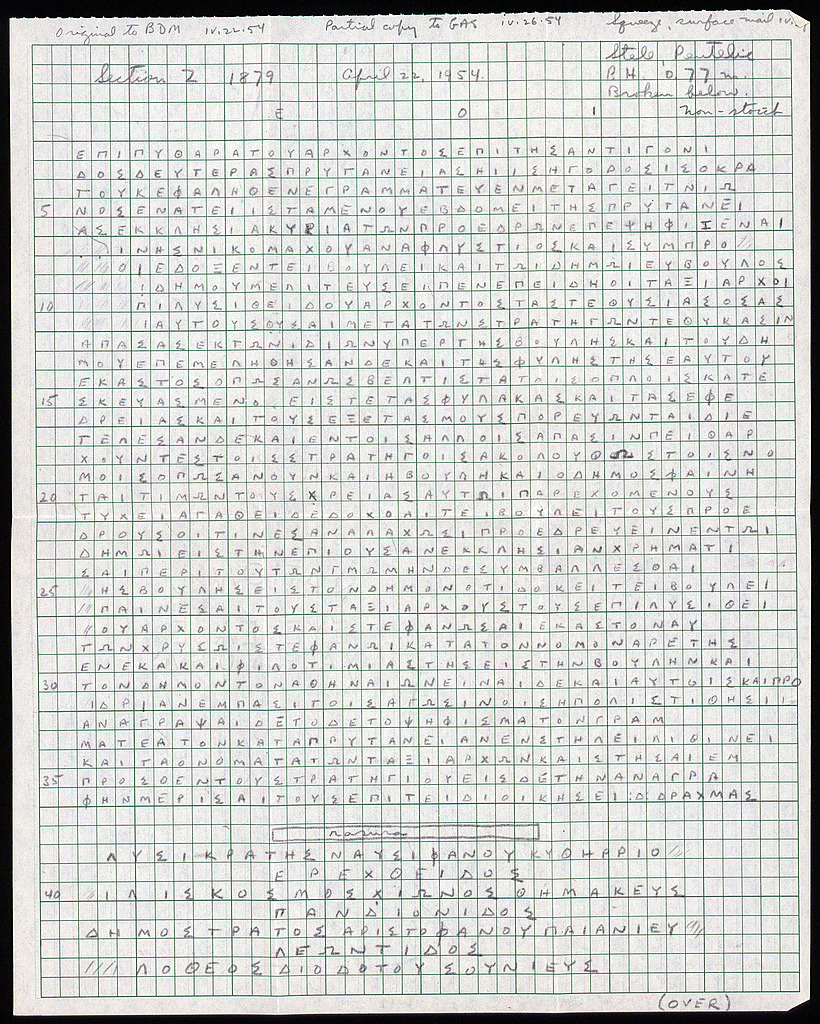 Original to BDM IV.22.54 Partial copy to GAS IV.26.54 Squeeze, surface-mail IV.
Stele Pentelic
Section Z 1879 April 22, 1954. P.H. 0.77 m.
Broken below.
Ε Ο Ι non-stoich
ΕΠΙΠΥΘΑΡΑΤΟΥΑΡΧΟΝΤΟΣΕΠΙΤΗΣΑΝΤΙΓΟΝΙ
ΔΟΣΔΕΥΤΕΡΑΣΠΡΥΤΑΝΕΙΑΣΗΙΙΣΗΓΟΔΟΣΙΣΟΚΡΑ
ΤΟΥΚΕΦΑΛΗΘΕΝΕΓΡΑΜΜΑΤΕΥΕΝΜΕΤΑΓΕΙΤΝΙΩ
5 ΝΟΣΕΝΑΤΕΙΙΣΤΑΜΕΝΟΥΕΒΔΟΜΕΙΤΗΣΠΡΥΤΑΝΕΙ
ΑΣΕΚΚΛΗΣΙΑΚΥΡΙΑΤΩΝΠΡΟΕΔΡΩΝΕΠΕΨΗΦΙΙΕΝΑΙ
ΙΝΗΣΝΙΚΟΜΑΧΟΥΑΝΑΦΛΥΣΤΙΟΣΚΑΙΣΥΜΠΡΟ
ΟΙΕΔΟΞΕΝΤΕΙΒΟΥΛΕΙΚΑΙΤΩΙΔΗΜΩΙΕΥΒΟΥΛΟΣ
ΙΔΗΜΟΥΜΕΛΙΤΕΥΣΕΙΠΕΝΕΠΕΙΔΗΟΙΤΑΞΙΑΡΧΟΙ
10 ΠΙΛΥΣΙΘΕΙΔΟΥΑΡΧΟΝΤΟΣΤΑΣΤΕΘΥΣΙΑΣΟΣΑΣ
ΙΑΥΤΟΥΣΘΥΣΑΙΜΕΤΑΤΩΝΣΤΡΑΤΗΓΩΝΤΕΘΥΚΑΣΙΝ
ΑΠΑΣΑΣΕΚΤΩΝΙΔΙΩΝΥΠΕΡΤΗΣΒΟΥΛΗΣΚΑΙΤΟΥΔΗ
ΜΟΥΕΠΕΜΕΛΗΘΗΣΑΝΔΕΚΑΙΤΗΣΦΥΛΗΣΤΗΣΕΑΥΤΟΥ
ΕΚΑΣΤΟΣΟΠΩΣΑΝΩΣΒΕΛΤΙΣΤΑΤΟΙΣΟΠΛΟΙΣΚΑΤΕ
15 ΣΚΕΥΑΣΜΕΝΟ ΕΙΣΤΕΤΑΣΦΥΛΑΚΑΣΚΑΙΤΑΣΕΦΕ
ΔΡΕΙΑΣΚΑΙΤΟΥΣΕΞΕΤΑΣΜΟΥΣΠΟΡΕΥΩΝΤΑΙΔΙΕ
ΤΕΛΕΣΑΝΔΕΚΑΙΕΝΤΟΙΣΑΛΛΟΙΣΑΠΑΣΙΝΠΕΙΘΑΡ
ΧΟΥΝΤΕΣΤΟΙΣΣΤΡΑΤΗΓΟΙΣΑΚΟΛΟΥΘΩΣΤΟΙΣΝΟ
ΜΟΙΣΟΠΩΣΑΝΟΥΝΚΑΙΗΒΟΥΛΗΚΑΙΟΔΗΜΟΣΦΑΙΝΗ
20 ΤΑΙΤΙΜΩΝΤΟΥΣΧΡΕΙΑΣΑΥΤΩΙΠΑΡΕΧΟΜΕΝΟΥΣ
ΤΥΧΕΙΑΓΑΘΕΙΔΕΔΟΧΘΑΙΤΕΙΒΟΥΛΕΙΤΟΥΣΠΡΟΕ
ΔΡΟΥΣΟΙΤΙΝΕΣΑΝΑΛΑΧΩΣΙΠΡΟΕΔΡΕΥΕΙΝΕΝΤΩΙ
ΔΗΜΩΙΕΙΣΤΗΝΕΠΙΟΥΣΑΝΕΚΚΛΗΣΙΑΝΧΡΗΜΑΤΙ
ΣΑΙΠΕΡΙΤΟΥΤΩΝΓΜΩΜΗΝΔΕΣΥΜΒΑΛΛΕΣΘΑΙ
25 ΗΣΒΟΥΛΗΣΕΙΣΤΟΝΔΗΜΟΝΟΤΙΔΟΚΕΙΤΕΙΒΟΥΛΕΙ
ΠΑΙΝΕΣΑΙΤΟΥΣΤΑΞΙΑΡΧΟΥΣΤΟΥΣΕΠΙΛΥΣΙΘΕΙ
ΟΥΑΡΧΟΝΤΟΣΚΑΙΣΤΕΦΑΝΩΣΑΙΕΚΑΣΤΟΝΑΥ
ΤΩΝΧΡΥΣΩΙΣΤΕΦΑΝΩΙΚΑΤΑΤΟΝΝΟΜΟΝΑΡΕΤΗΣ
ΕΝΕΚΑΚΑΙΦΙΛΟΤΙΜΙΑΣΤΗΣΕΙΣΤΗΝΒΟΥΛΗΝΚΑΙ
30 ΤΟΝΔΗΜΟΝΤΟΝΑΘΗΝΑΙΩΝΕΙΝΑΙΔΕΚΑΙΑΥΤΟΙΣΚΑΙΠΡΟ
ΙΔΡΙΑΝΕΜΠΑΣΙΤΟΙΣΑΓΩΣΙΝΟΙΣΗΠΟΛΙΣΤΙΘΗΣΙ
ΑΝΑΓΡΑΨΑΙΔΕΤΟΔΕΤΟΨΗΦΙΣΜΑΤΟΝΓΡΑΜ
ΜΑΤΕΑΤΟΝΚΑΤΑΠΡΥΤΑΝΕΙΑΝΕΝΣΤΗΛΕΙΛΙΘΙΝΕΙ
ΚΑΙΤΑΟΝΟΜΑΤΑΤΩΝΤΑΞΙΑΡΧΩΝΚΑΙΣΤΗΣΑΙΕΜ
35 ΠΡΟΣΘΕΝΤΟΥΣΤΡΑΤΗΓΙΟΥΕΙΣΔΕΤΗΝΑΝΑΓΡΑ
ΦΗΝΜΕΡΙΣΑΙΤΟΥΣΕΠΙΤΕΙΔΙΟΙΚΗΣΕΙ:Δ:ΔΡΑΧΜΑΣ
rasura
ΛΥΣΙΚΡΑΤΗΣΝΑΥΣΙΦΑΝΟΥΚΥΘΗΡΡΙΟ
ΕΡΕΧΘΕΙΔΟΣ
40 ΙΛΙΣΚΟΣΜΟΣΧΙΩΝΟΣΘΗΜΑΚΕΥΣ
ΠΑΝΔΙΟΝΙΔΟΣ
ΔΗΜΟΣΤΡΑΤΟΣΑΡΙΣΤΟΦΑΝΟΥΠΑΙΑΝΙΕΥ
ΛΕΩΝΤΙΔΟΣ
ΛΟΘΕΟΣΔΙΟΔΟΤΟΥΣΟΥΝΙΕΥΣ
(OVER)